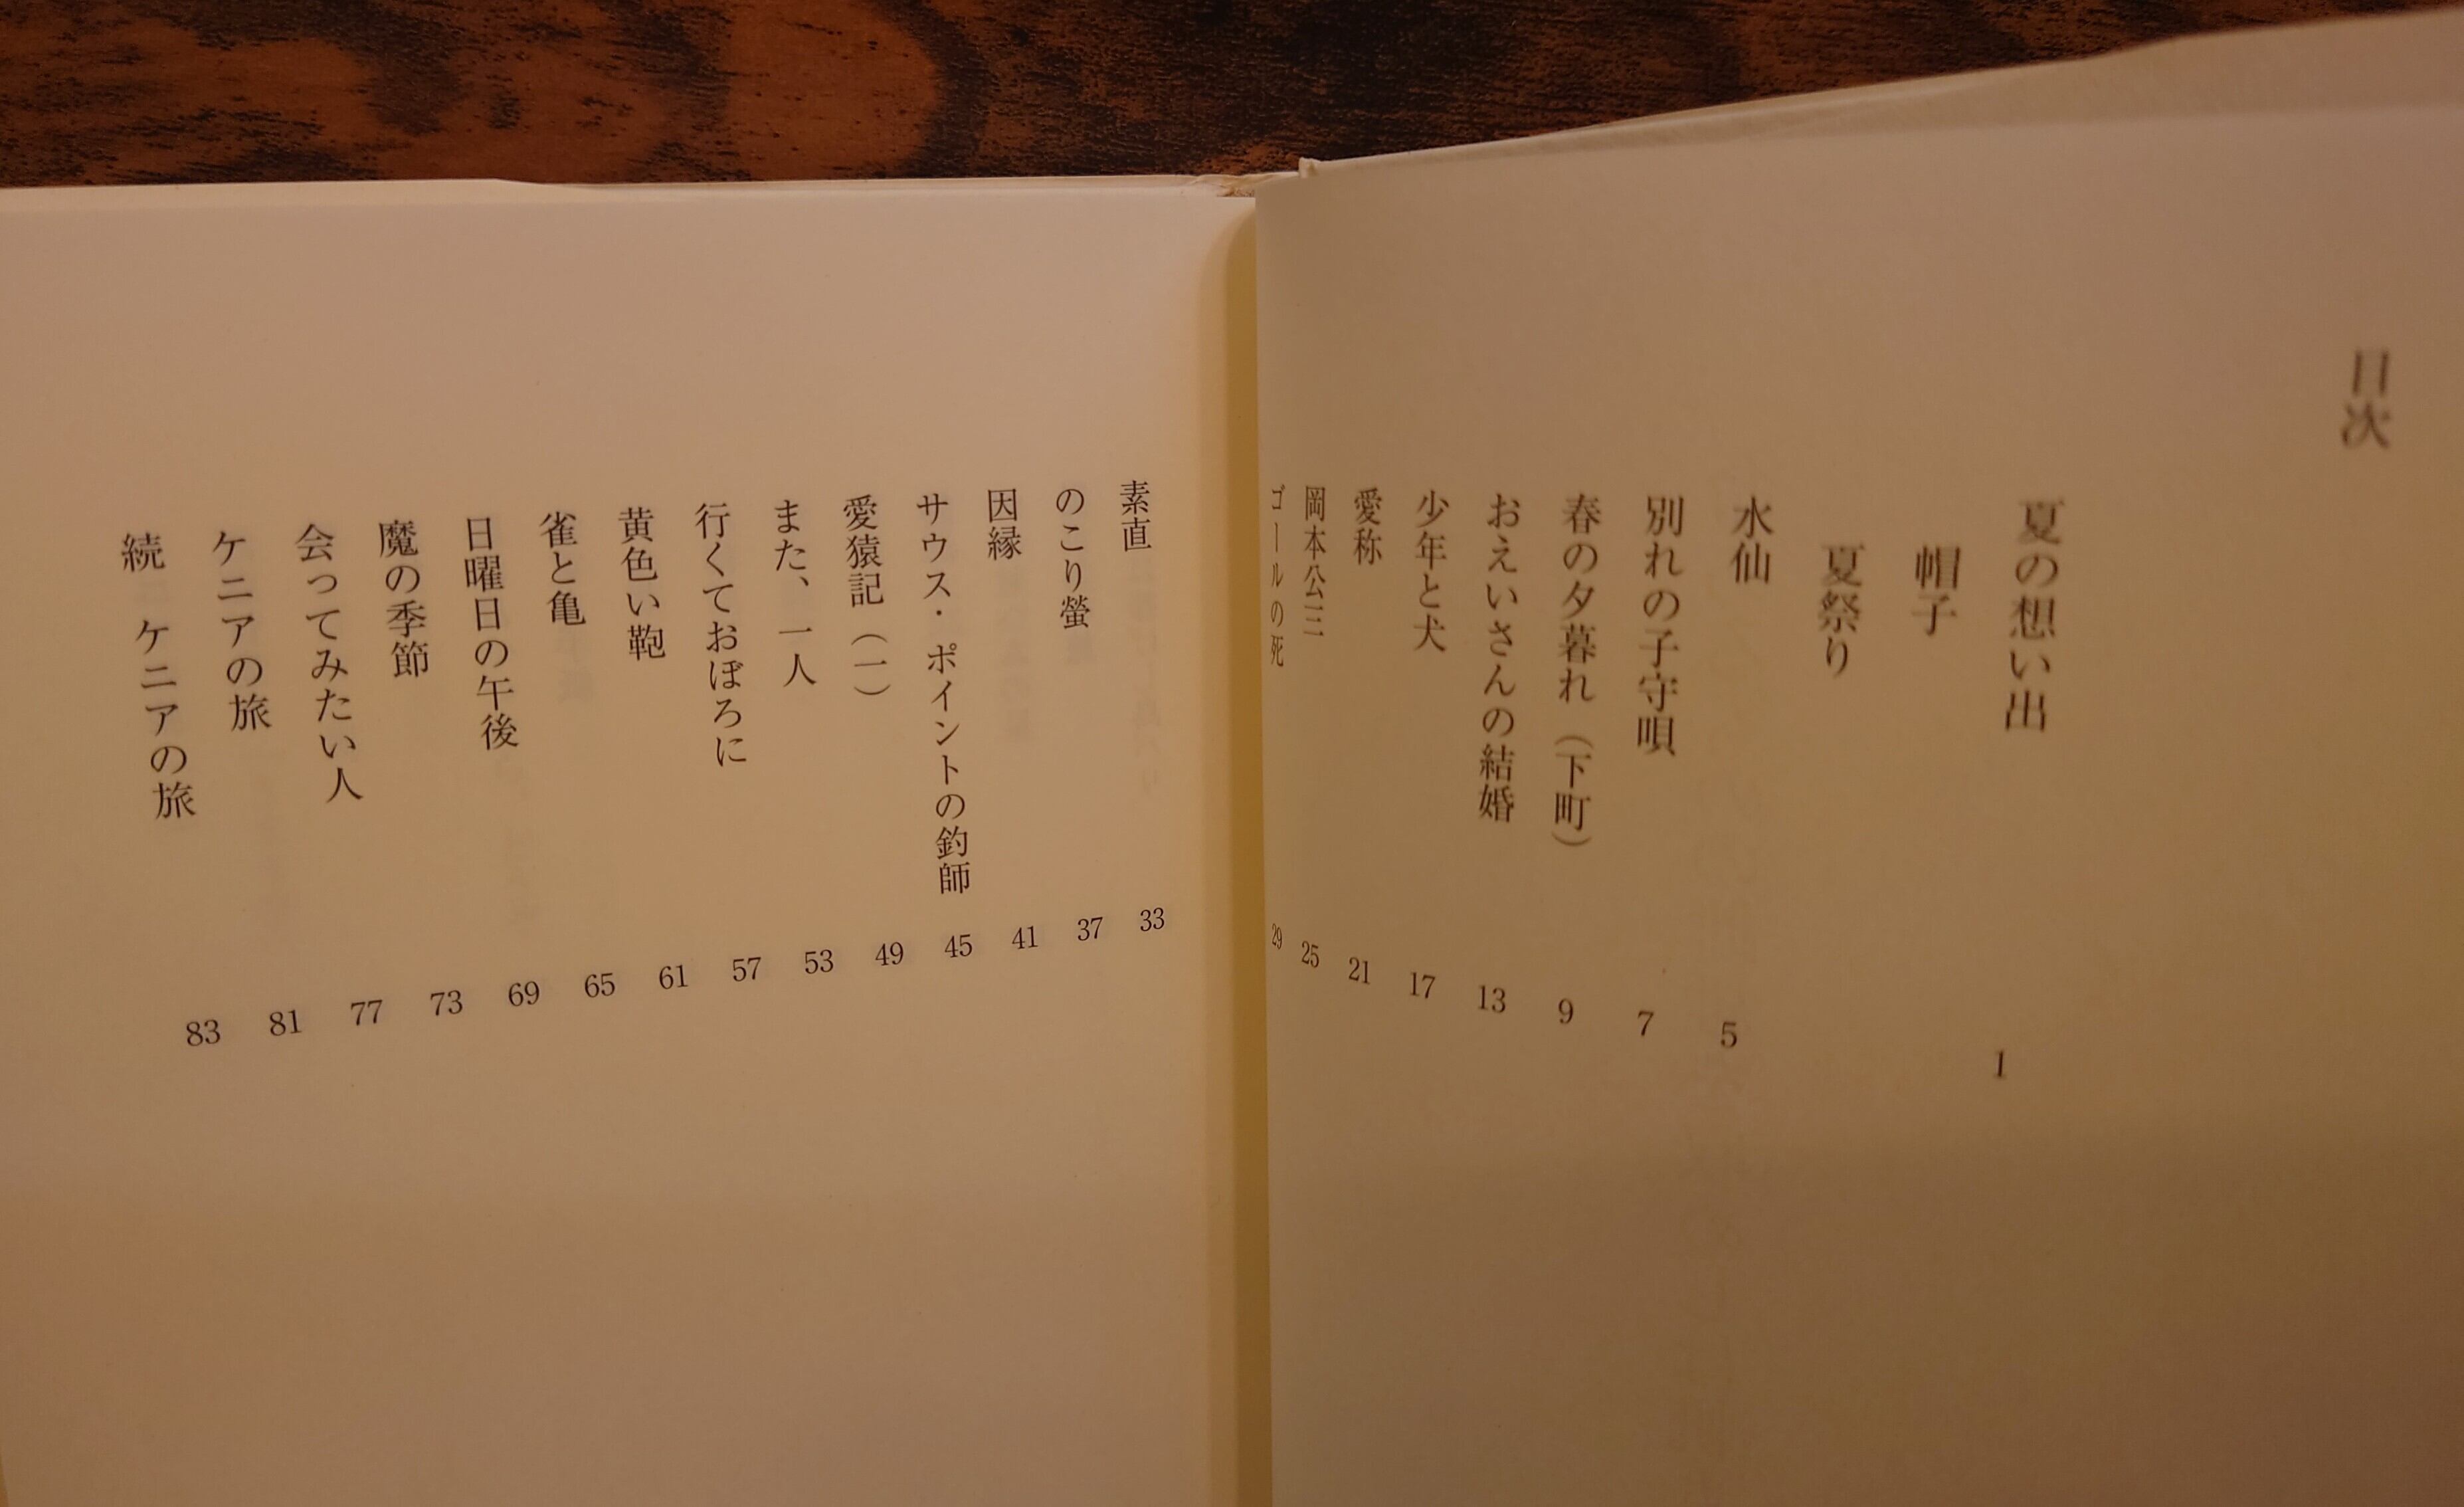 目次
夏の想い出 1
帽子
夏祭り
水仙 5
別れの子守唄 7
春の夕暮れ（下町） 9
おえいさんの結婚 13
少年と犬 17
愛称 21
岡本公三 25
ゴールの死 29
素直 33
のこり螢 37
因縁 41
サウス・ポイントの釣師 45
愛猿記（一） 49
また、一人 53
行くておぼろに 57
黄色い鞄 61
雀と亀 65
日曜日の午後 69
魔の季節 73
会ってみたい人 77
ケニアの旅 81
続　ケニアの旅 83